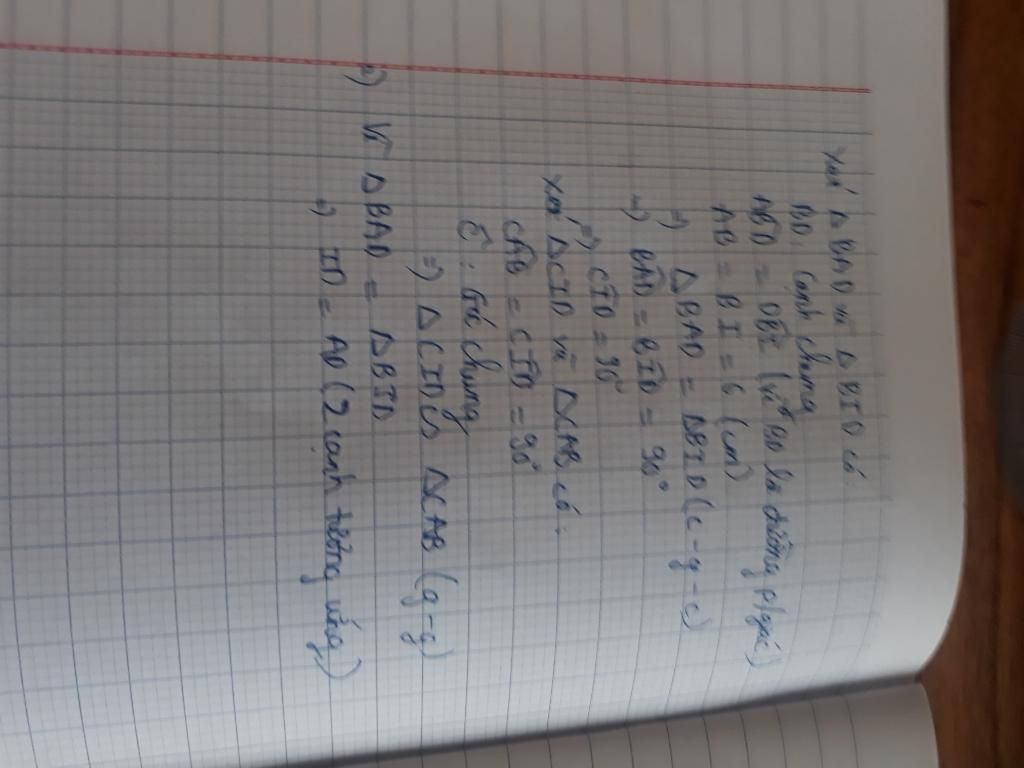 Xét Δ BAD và Δ BID có:
BD: Cạnh chung
ABD̂ = DBÎ (vì BD là đường p/giác)
AB = BI = 6 (cm)
=) Δ BAD = ΔBID (c-g-c)
=) BAD̂ = BID̂ = 90°
=) CID̂ = 90°
Xét ΔCID và ΔCAB có:
CAB̂ = CID̂ = 90°
Ĉ : Góc chung
=) ΔCID ∽ ΔCAB (g-g)
Vì ΔBAD = ΔBID
=) ID = AD (2 cạnh tương ứng)